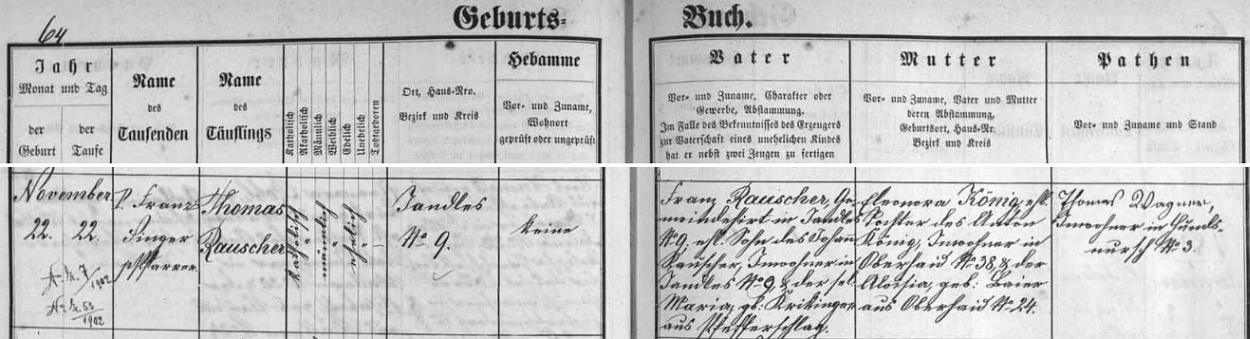 Geburts-
Buch.
64
Jahr
Monat und Tag
der Geburt
der Taufe
Name
des
Taufenden
Name
des
Täuflings
Katholisch
Akatholisch
Männlich
Weiblich
Ehelich
Unehelich
Todtgeboren
Ort, Haus-Nro.
Bezirk und Kreis
Hebamme
Vor- und Zuname,
Wohnort
geprüft oder ungeprüft
Vater
Vor- und Zuname, Charakter oder
Gewerbe, Abstammung.
Im Falle des Bekenntnisses des Erzeugers
zur Vaterschaft eines unehelichen Kindes
hat er nebst zwei Zeugen zu fertigen
Mutter
Vor- und Zuname, Vater und Mutter
deren Abstammung,
Geburtsort, Haus-Nr.
Bezirk und Kreis
Pathen
Vor- und Zuname und Stand
November
22. 22.
1902
1902
P. Franz
Singer
Pfarrer
Thomas
Rauscher
katholisch
männlich
ehelich
Sandles
No 9.
keine
Franz Rauscher, Ge-
meindehirt in Sandles
No 9, ehl. Sohn des Johann
Rauscher, Inwohner in
Sandles No 9, & der
Maria, geb. Kritzinger
aus Pfefferschlag.
Eleonora König, ehl.
Tochter des Anton
König, Inwohner in
Oberhaid No 38, & der
Aloisia, geb: Baier
aus Oberhaid No 24.
Thomas Wagner,
Inwohner in Hunds-
nursch No 3.